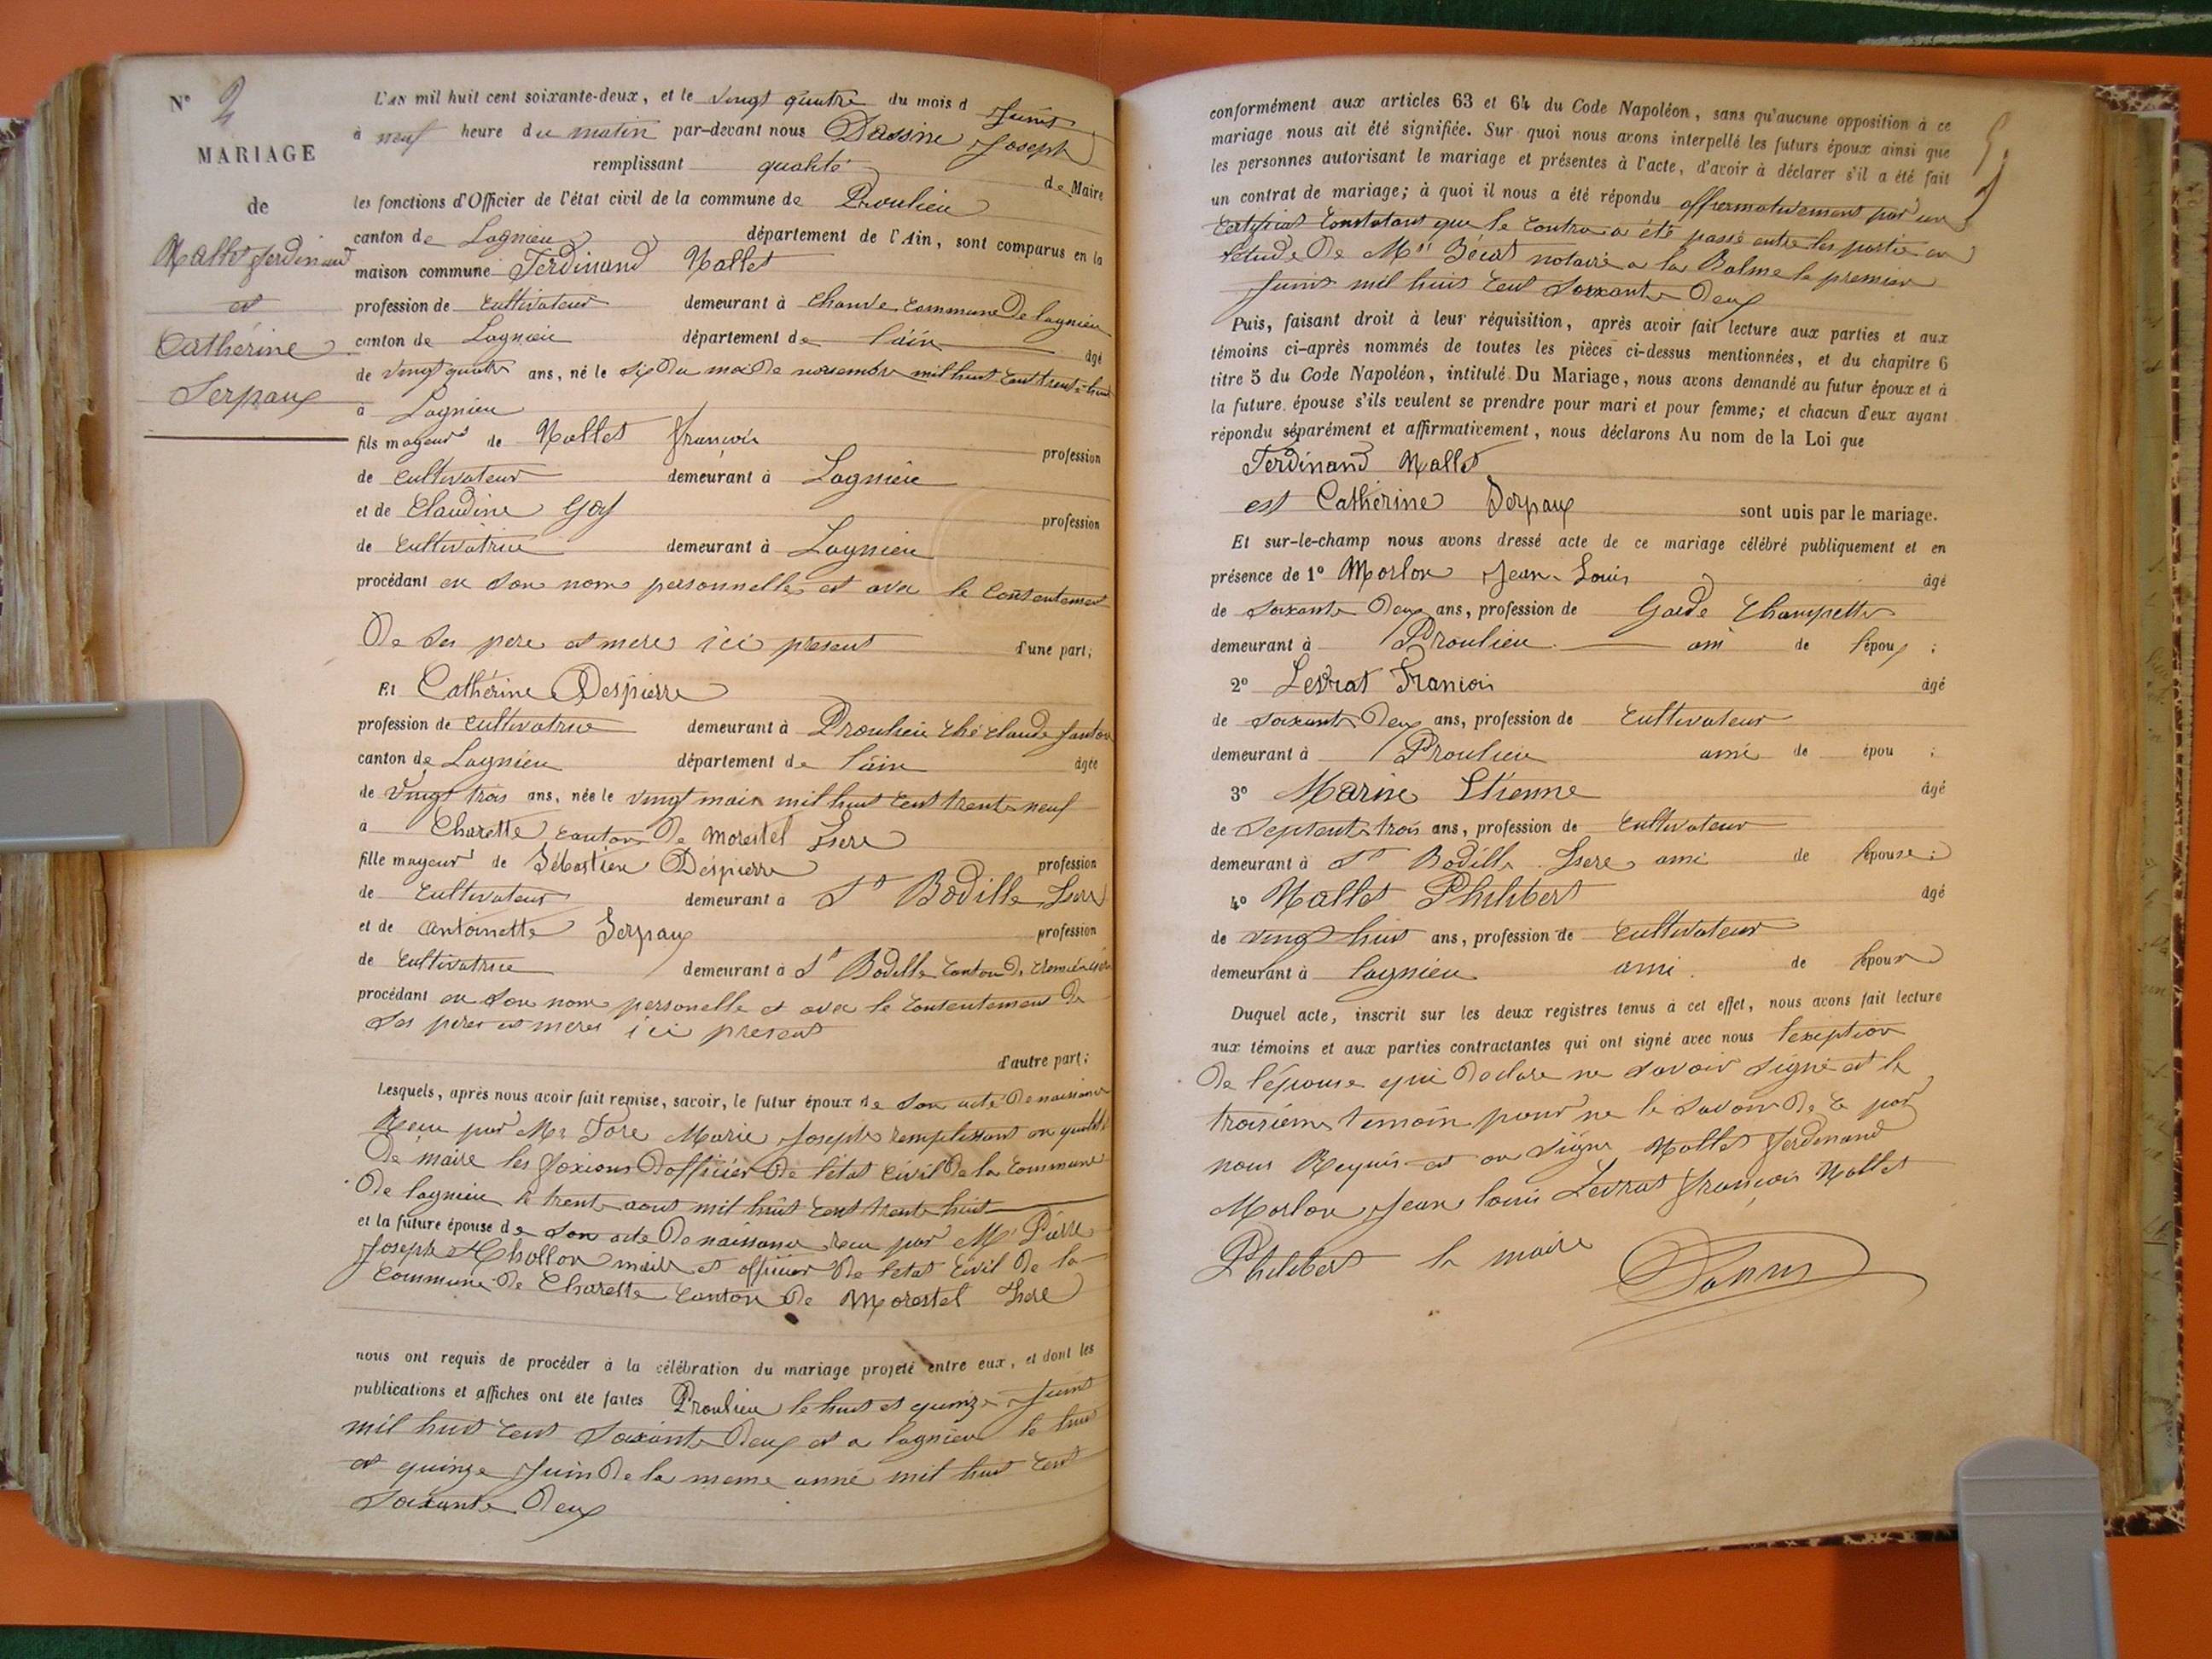 N° 2
MARIAGE
de
Nallet ferdinand
et
Cathérine
Serpaux
L'AN mil huit cent soixante-deux, et le vingt quatre du mois d Juint
à neuf heure du matin par-devant nous Joseph
remplissant qualité de Maire
les fonctions d'Officier de l'état civil de la commune de Proulieu
canton de Lagnieu département de l'Ain, sont comparus en la
maison commune Ferdinand Nallet
profession de cultivateur demeurant à Chanve commune De lagnieu
canton de Lagnieu département de l'ain âgé
de vingt quatre ans, né le Du moi De novembre mil huit cent trente-huit
à Lagnieu
fils mageur de Nallet françois profession
de cultivateur demeurant à Lagnieu
et de Claudine Goy profession
de cultivatrice demeurant à Lagnieu
procédant en son nom personnelle et avec le consentement
De ses pere et mere ici present d'une part;
Et Cathérine Despierre
profession de cultivatrice demeurant à Proulieu ché claude
canton de Lagnieu département de l'ain âgée
de vingt trois ans, née le vingt mais mil huit cent trente neuf
à Charette canton De Morestel Isere
fille mageur de Sébastien Déspierre profession
de cultivateur demeurant à St Bodille Isere
et de antoinette Serpaux profession
de cultivatrice demeurant à St Bodille Canton De
procédant en son nom personelle et avec le consentement De
ses peres et meres ici present
d'autre part;
Lesquels, après nous avoir fait remise, savoir, le futur époux de son acte De naissance
Recu par Mr Marie Joseph remplissant en qualité
De maire les foxions D'officier De l'état civil De la commune
De lagnieu le trente aout mil huit cent trente huit
et la future épouse de son acte De naissance recu par Mr Pierre
Joseph maire et officier De l'etat civil De la
commune De Charette canton De Morestel Isere
nous ont requis de procéder à la célébration du mariage projeté entre eux, et dont les
publications et affiches ont été faites Proulieu le huit et quinze Juint
mil huit cent soixante Deux et a lagnieu le huit
et quinze Juin De la meme anné mil huit cent
soixante Deux
conformément aux articles 63 et 64 du Code Napoléon, sans qu'aucune opposition à ce
mariage nous ait été signifiée. Sur quoi nous avons interpellé les futurs époux ainsi que
les personnes autorisant le mariage et présentes à l'acte, d'avoir à déclarer s'il a été fait
un contrat de mariage; à quoi il nous a été répondu affirmativement par un
certificat constatant que le contra a été passé entre les partie en
l'etude De Mtr notaire a la Balme le premier
Juint mil huit cent soixante Deux
Puis, faisant droit à leur réquisition, après avoir fait lecture aux parties et aux
témoins ci-après nommés de toutes les pièces ci-dessus mentionnées, et du chapitre 6
titre 5 du Code Napoléon, intitulé Du Mariage, nous avons demandé au futur époux et à
la future épouse s'ils veulent se prendre pour mari et pour femme; et chacun d'eux ayant
répondu séparément et affirmativement, nous déclarons Au nom de la Loi que
Ferdinand Nallet
est Cathérine Serpaux sont unis par le mariage.
Et sur-le-champ nous avons dressé acte de ce mariage célébré publiquement et en
présence de 1° Morlon Jean Louis âgé
de soixante Deux ans, profession de Garde Champettre
demeurant à Proulieu ami de l'époux ;
2° Levrat François âgé
de soixante Deux ans, profession de cultivateur
demeurant à Proulieu ami de épou ;
3° Marin Etienne âgé
de septente trois ans, profession de cultivateur
demeurant à St Bodille Isere ami de l'épouse ;
4° Nallet Philibert âgé
de vingt huit ans, profession de cultivateur
demeurant à lagnieu ami de l'époux
Duquel acte, inscrit sur les deux registres tenus à cet effet, nous avons fait lecture
aux témoins et aux parties contractantes qui ont signé avec nous l'exeption
De l'épouse qui Declare ne savoir signé et le
troixiem temoin pour ne le savoir De ce par
nous Requis et on signé Nallet ferdinand
Morlon Jean louis Levrat françois Nallet
Philibert le maire